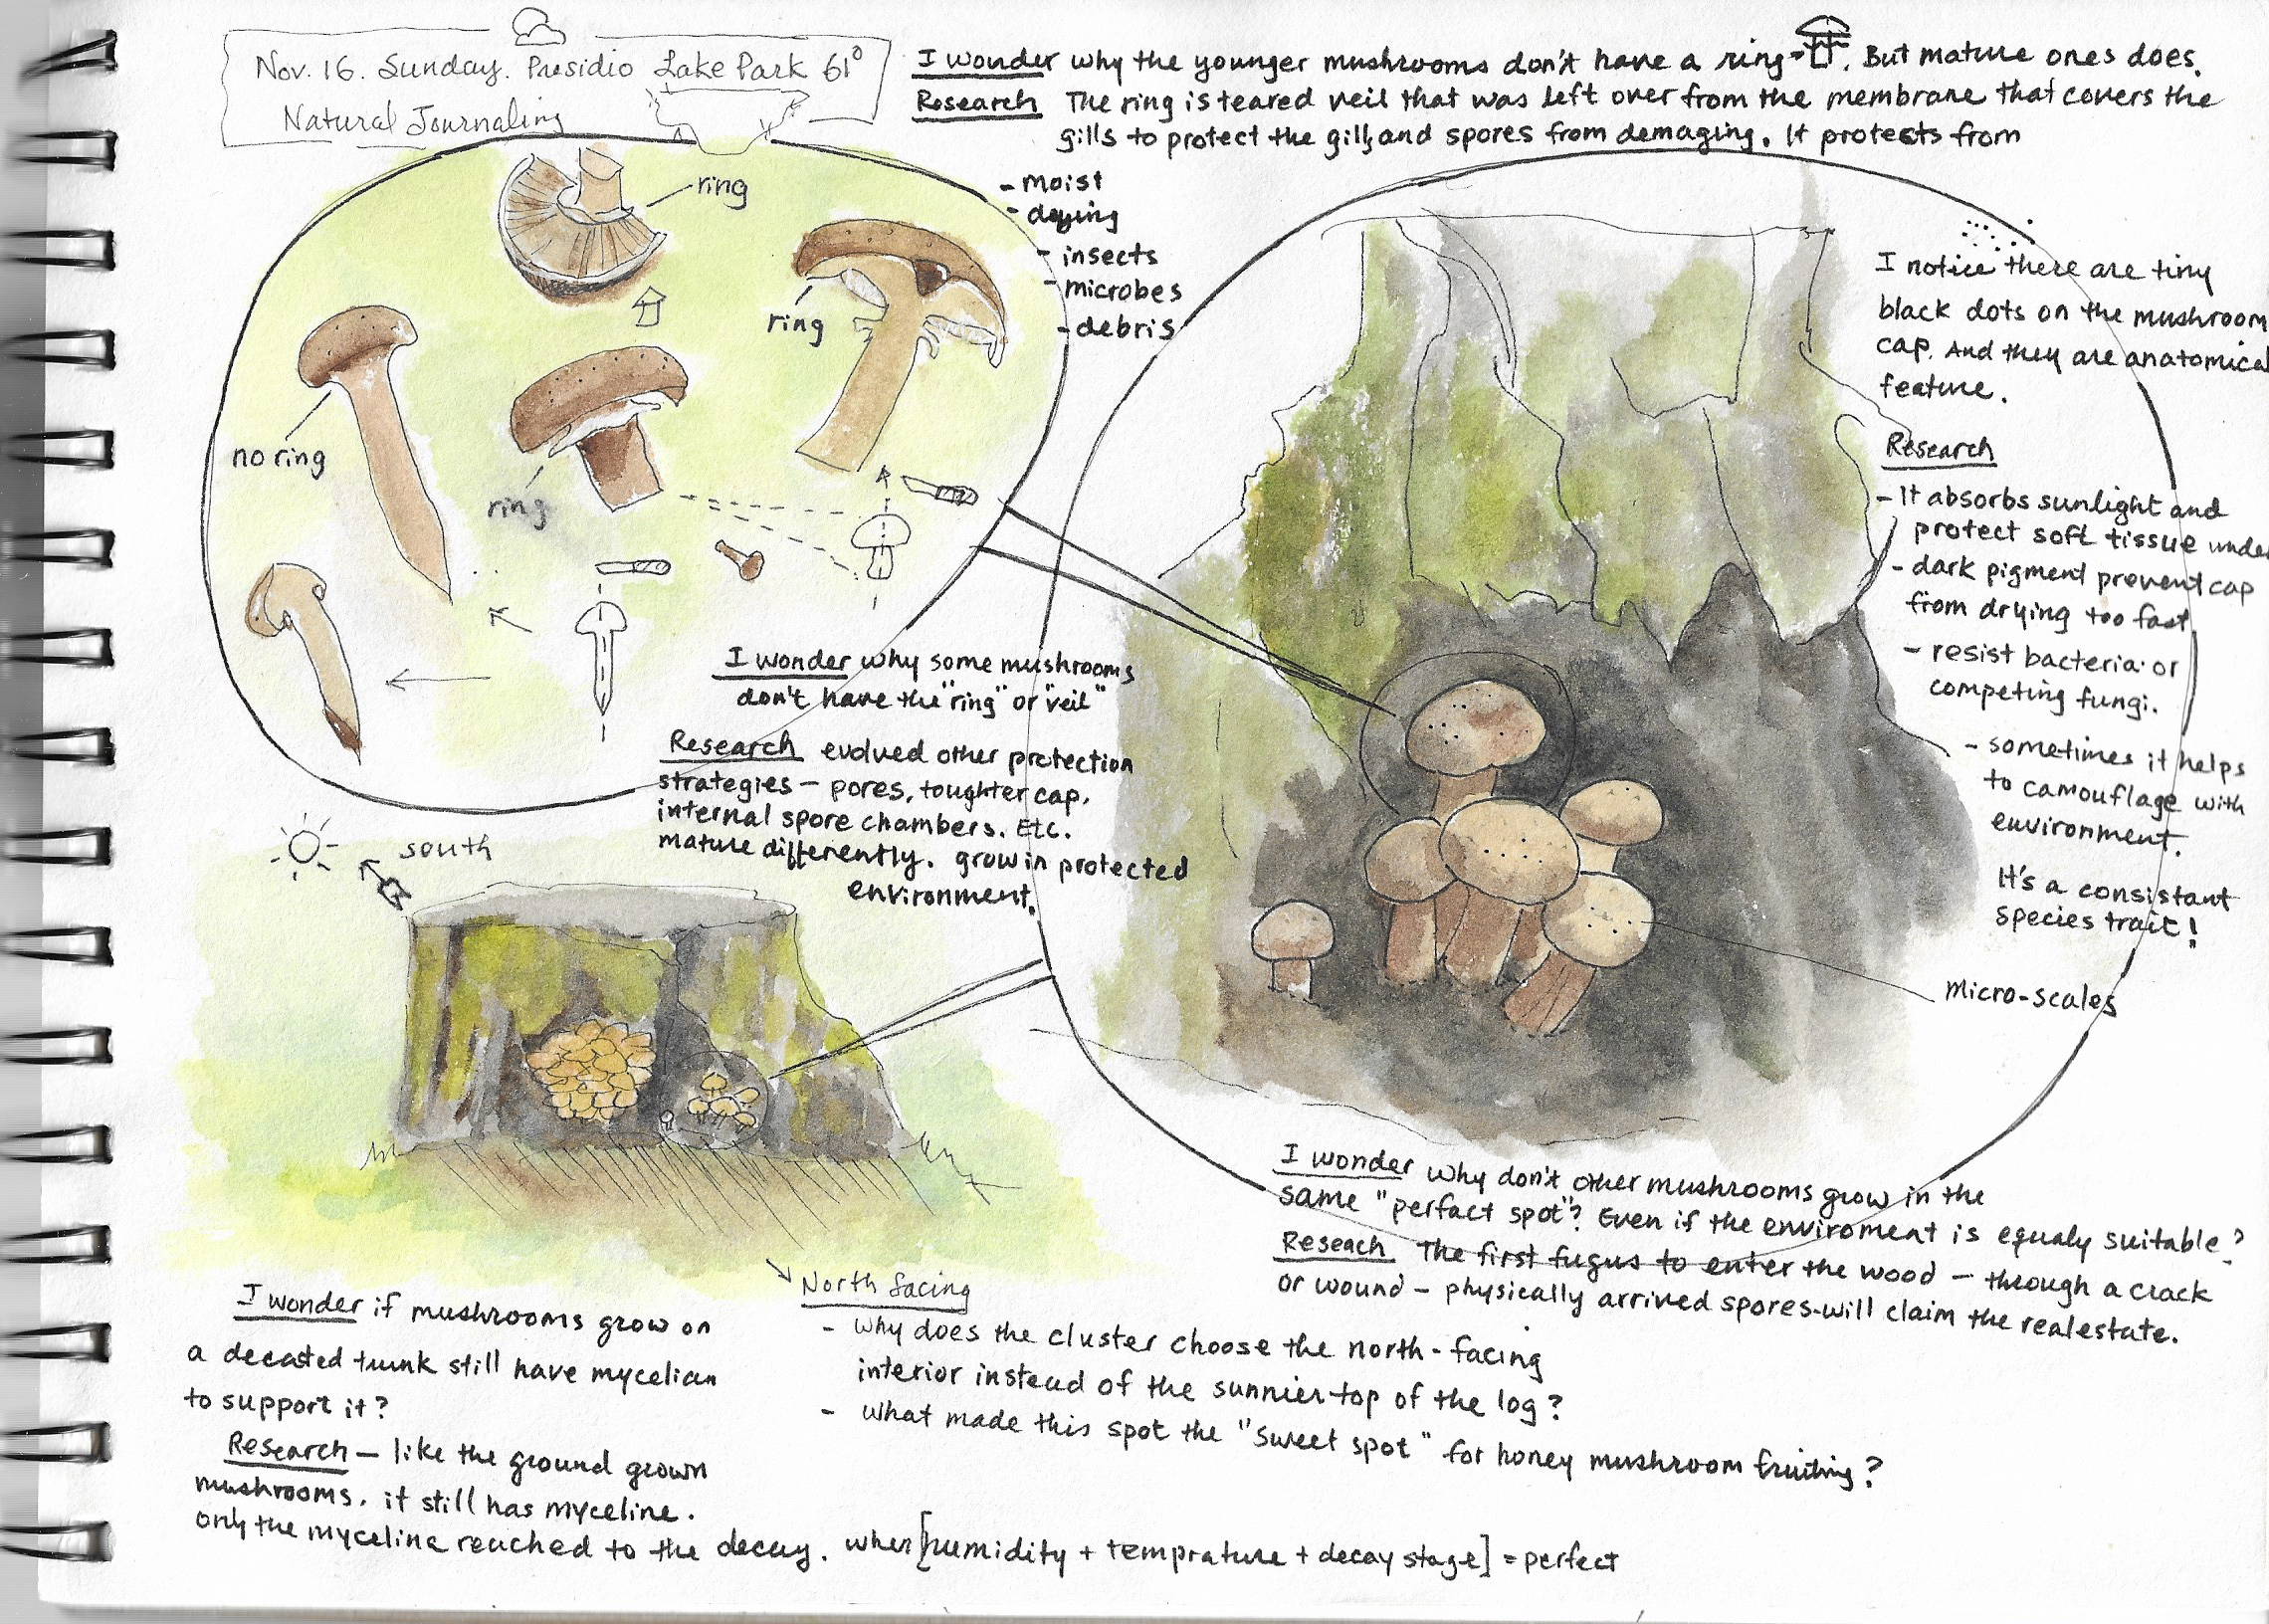 Nov. 16. Sunday. Presidio Lake Park 61°
Natural Journaling
I wonder why the younger mushrooms don't have a ring. But mature ones does.
Research The ring is teared veil that was left over from the membrane that covers the
gills to protect the gills and spores from demaging. It protests from
- moist
- drying
- insects
- microbes
- debris
ring
ring
no ring
ring
I wonder why some mushrooms
don't have the "ring" or "veil"
Research evolved other protection
strategies – pores, toughter cap,
internal spore chambers. Etc.
mature differently. grow in protected
environment.
south
I notice there are tiny
black dots on the mushroom
cap. And they are anatomical
feature.
Research
- It absorbs sunlight and
protect soft tissue under
- dark pigment prevent cap
from drying too fast
- resist bacteria or
competing fungi.
- sometimes it helps
to camouflage with
environment.
It's a consistant
species trait!
micro-scales
I wonder why don't other mushrooms grow in the
same "perfact spot"? Even if the enviroment is equaly suitable?
Reseach The first fugus to enter the wood – through a crack
or wound – physically arrived spores-will claim the realestate.
North facing
- why does the cluster choose the north-facing
interior instead of the sunnier top of the log?
- what made this spot the "sweet spot" for honey mushroom fruiting?
I wonder if mushrooms grow on
a decated trunk still have mycelian
to support it?
Research – like the ground grown
mushrooms. it still has myceline.
only the myceline reached to the decay. when [humidity + temprature + decay stage] = perfect